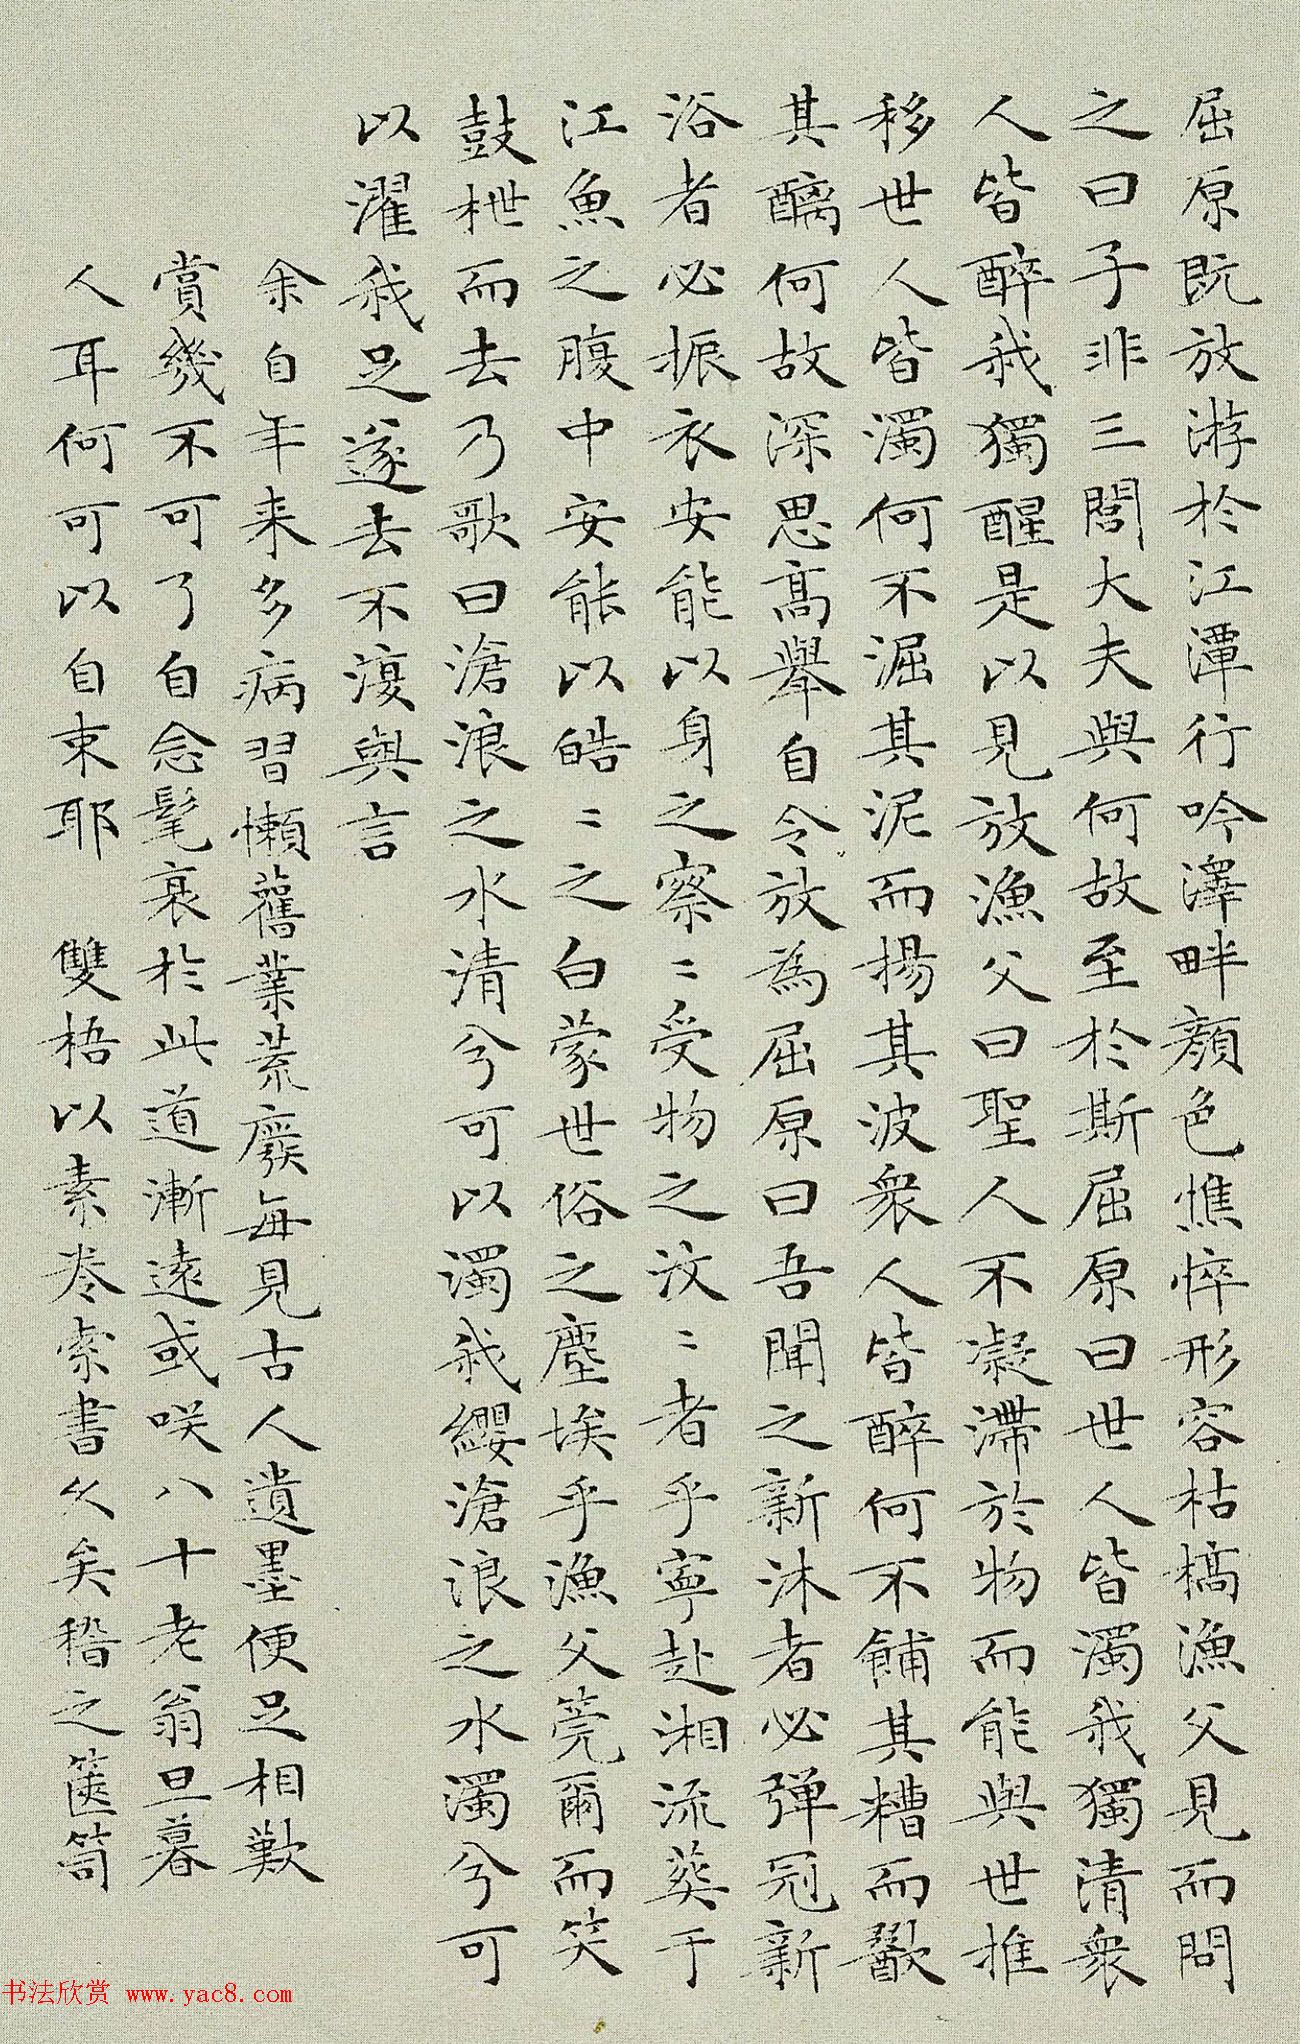 屈原既放游於江潭行吟澤畔顏色憔悴形容枯槁漁父見而問
之曰子非三閭大夫與何故至於斯屈原曰世人皆濁我獨清衆
人皆醉我獨醒是以見放漁父曰聖人不凝滯於物而能與世推
移世人皆濁何不淈其泥而揚其波衆人皆醉何不餔其糟而歠
其醨何故深思高舉自令放為屈原曰吾聞之新沐者必彈冠新
浴者必振衣安能以身之察〻受物之汶〻者乎寧赴湘流葬于
江魚之腹中安能以皓〻之白蒙世俗之塵埃乎漁父莞爾而笑
鼓枻而去乃歌曰滄浪之水清兮可以濯我纓滄浪之水濁兮可
以濯我足遂去不復與言
余自年来多病習懶舊業荒廢每見古人遺墨便足相歎
賞幾不可了自念髦衰於此道漸遠或咲八十老翁旦暮
人耳何可以自束耶 雙梧以素卷索書久矣稽之篋笥
书法欣赏 www.yac8.com